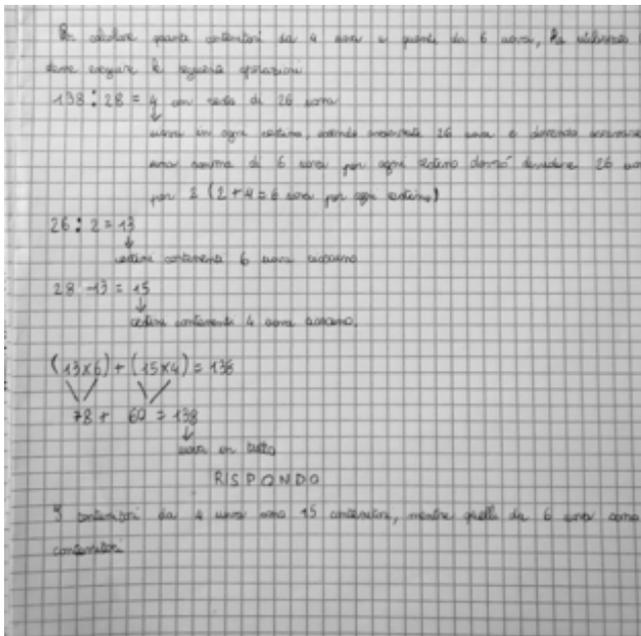 Per calcolare quanti contenitori da 4 uova e quanti da 6 uova, ha utilizzato
deve eseguire le seguenti operazioni
138 : 28 = 4 con resto di 26 uova
uova in ogni cestino, avendo 26 uova e dovendo
una somma di 6 uova per ogni cestino dovrò dividere 26
per 2 (2+4=6 uova per ogni cestino)
26 : 2 = 13
cestini contenenti 6 uova ciascuno
28 - 13 = 15
cestini contenenti 4 uova ciascuno.
(13x6) + (15x4) = 138
78 + 60 = 138
uova in tutto
RISPONDO
I contenitori da 4 uova sono 15 contenitori, mentre quelli da 6 uova sono
contenitori